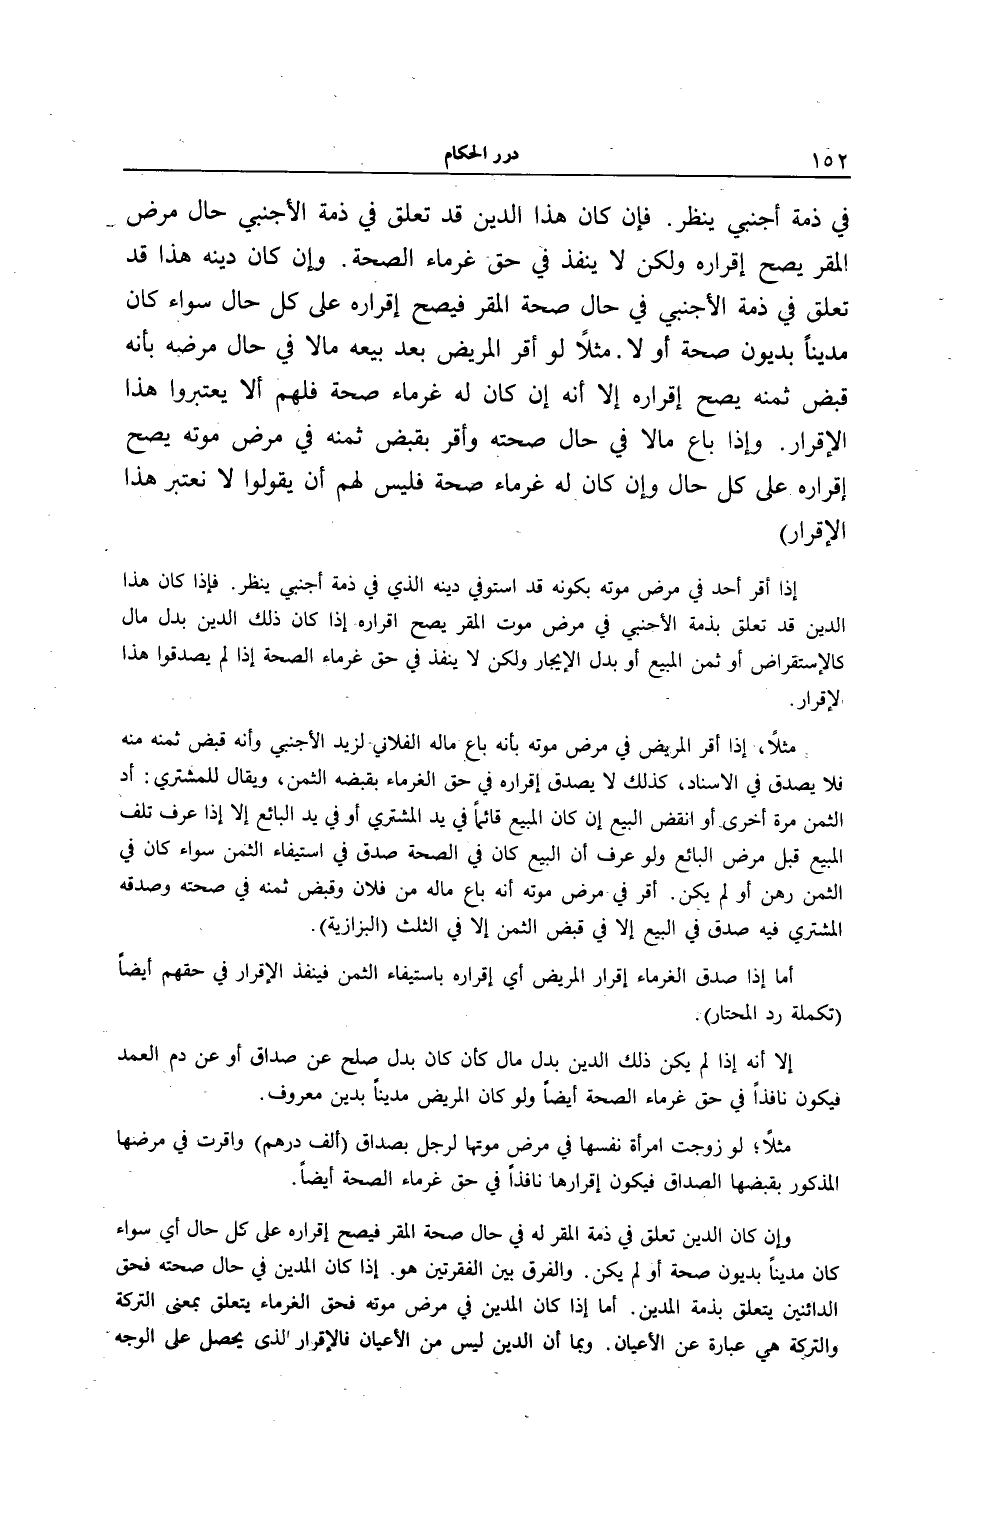 ١٥٢
درر الحكام
في ذمة أجنبي ينظر. فإن كان هذا الدين قد تعلق في ذمة الأجنبي حال مرض
المقر يصح إقراره ولكن لا ينفذ في حق غرماء الصحة. وإن كان دينه هذا قد
تعلق في ذمة الأجنبي في حال صحة المقر فيصح إقراره على كل حال سواء كان
مديناً بديون صحة أو لا. مثلاً لو أقر المريض بعد بيعه مالا في حال مرضه بأنه
قبض ثمنه يصح إقراره إلا أنه إن كان له غرماء صحة فلهم ألا يعتبروا هذا
الإقرار. وإذا باع مالا في حال صحته وأقر بقبض ثمنه في مرض موته يصح
إقراره على كل حال وإن كان له غرماء صحة فليس لهم أن يقولوا لا نعتبر هذا
الإقرار)
إذا أقر أحد في مرض موته بكونه قد استوفي دينه الذي في ذمة أجنبي ينظر. فإذا كان هذا
الدين قد تعلق بذمة الأجنبي في مرض موت المقر يصح اقراره إذا كان ذلك الدين بدل مال
كالإستقراض أو ثمن المبيع أو بدل الإيجار ولكن لا ينفذ في حق غرماء الصحة إذا لم يصدقوا هذا
لإقرار.
مثلاً، إذا أقر المريض في مرض موته بأنه باع ماله الفلاني لزيد الأجنبي وأنه قبض ثمنه منه
فلا يصدق في الاسناد، كذلك لا يصدق إقراره في حق الغرماء بقبضه الثمن، ويقال للمشتري: أد
الثمن مرة أخرى أو انقض البيع إن كان المبيع قائماً في يد المشتري أو في يد البائع إلا إذا عرف تلف
المبيع قبل مرض البائع ولو عرف أن البيع كان في الصحة صدق في استيفاء الثمن سواء كان في
الثمن رهن أو لم يكن. أقر في مرض موته أنه باع ماله من فلان وقبض ثمنه في صحته وصدقه
المشتري فيه صدق في البيع إلا في قبض الثمن إلا في الثلث (البزازية).
أما إذا صدق الغرماء إقرار المريض أي إقراره باستيفاء الثمن فينفذ الإقرار في حقهم أيضاً
(تكملة رد المحتار).
إلا أنه إذا لم يكن ذلك الدين بدل مال كأن كان بدل صلح عن صداق أو عن دم العمد
فيكون نافذاً في حق غرماء الصحة أيضاً ولو كان المريض مديناً بدين معروف.
مثلاً؛ لو زوجت امرأة نفسها في مرض موتها لرجل بصداق (ألف درهم) واقرت في مرضها
المذكور بقبضها الصداق فيكون إقرارها نافذاً في حق غرماء الصحة أيضاً.
وإن كان الدين تعلق في ذمة المقر له في حال صحة المقر فيصح إقراره على كل حال أي سواء
كان مديناً بديون صحة أو لم يكن. والفرق بين الفقرتين هو. إذا كان المدين في حال صحته فحق
الدائنين يتعلق بذمة المدين. أما إذا كان المدين في مرض موته فحق الغرماء يتعلق بمعنى التركة
والتركة هي عبارة عن الأعيان. وبما أن الدين ليس من الأعيان فالإقرار الذى يحصل على الوجه